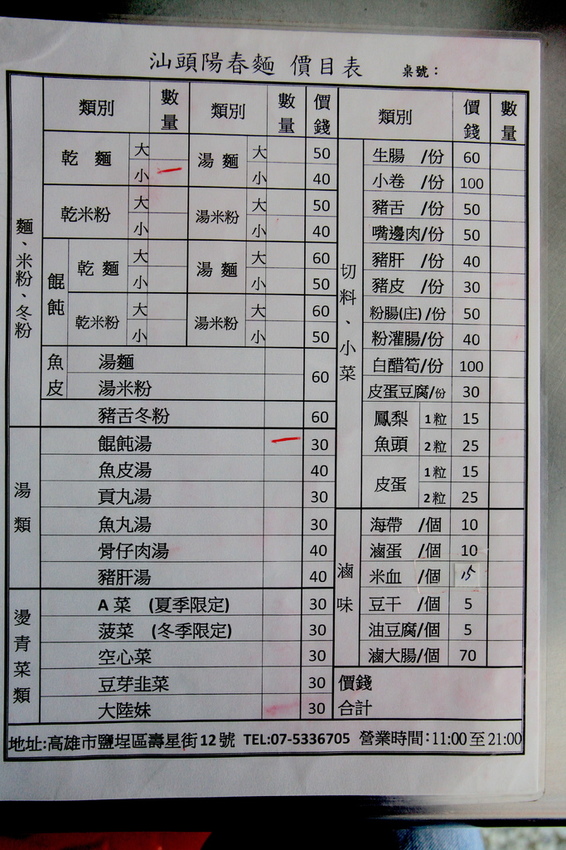 汕頭陽春麵 價目表 桌號：
類別 數量 類別 數量 價錢
麵、米粉、冬粉
乾麵 大 湯麵 大 50
小 小 40
乾米粉 大 湯米粉 大 50
小 小 40
餛飩
乾麵 大 湯麵 大 60
小 小 50
乾米粉 大 湯米粉 大 60
小 小 50
魚皮
湯麵
湯米粉 60
豬舌冬粉 60
湯類
餛飩湯 30
魚皮湯 40
貢丸湯 30
魚丸湯 30
骨仔肉湯 40
豬肝湯 40
燙青菜類
A菜 (夏季限定) 30
菠菜 (冬季限定) 30
空心菜 30
豆芽韭菜 30
大陸妹 30
類別 價錢 數量
切料、小菜
生腸 /份 60
小卷 /份 100
豬舌 /份 50
嘴邊肉/份 50
豬肝 /份 40
豬皮 /份 30
粉腸(庄) /份 50
粉灌腸/份 40
白醋筍/份 100
皮蛋豆腐/份 30
鳳梨魚頭 1粒 15
2粒 25
皮蛋 1粒 15
2粒 25
滷味
海帶 /個 10
滷蛋 /個 10
米血 /個 15
豆干 /個 5
油豆腐/個 5
滷大腸/個 70
價錢
合計
地址:高雄市鹽埕區壽星街12號 TEL:07-5336705 營業時間:11:00至21:00